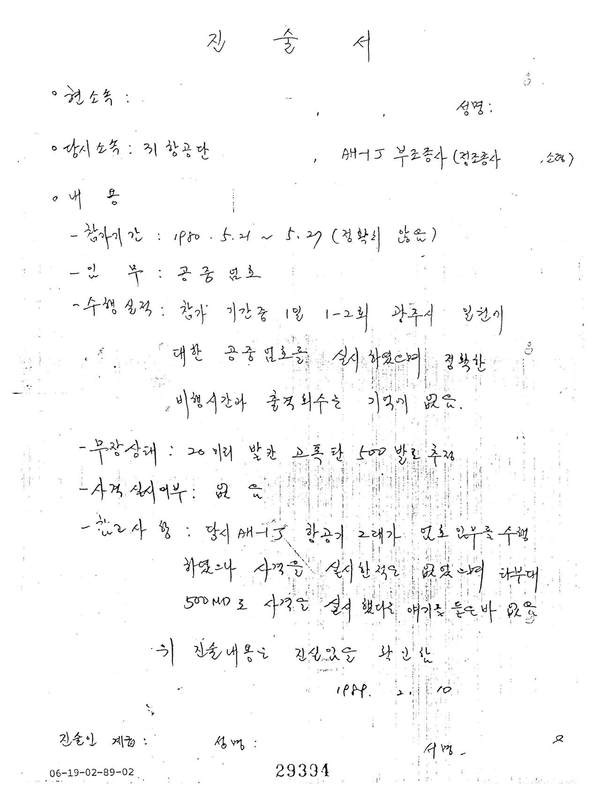 진 술 서
○ 현소속 : , , 성명 :
○ 당시소속 : 31 항공단 , AH-1J 부조종사 (정조종사 , 소령)
○ 내 용
- 참가기간 : 1980. 5. 21 ~ 5. 27 (정확치 않음)
- 임 무 : 공중 엄호
- 수행실적 : 참가 기간중 1일 1-2회 광주시
대한 공중엄호를 실시하였으며 정확한
비행시간과 출격회수는 기억이 없음.
- 무장상태 : 20미리 발칸 고폭탄 500발로 추정
- 사격실시여부 : 없 음
- 참고사항 : 당시 AH-1J 항공기 2대가 엄호 임무를 수행
하였으나 사격을 실시한적은 없었으며 타부대
500MD로 사격을 실시했다는 얘기를 들은바 없음
위 진술내용은 진실임을 확인함
1989. 2. 10
진술인 계급 : 성명 : 서명
06-19-02-89-02
29394